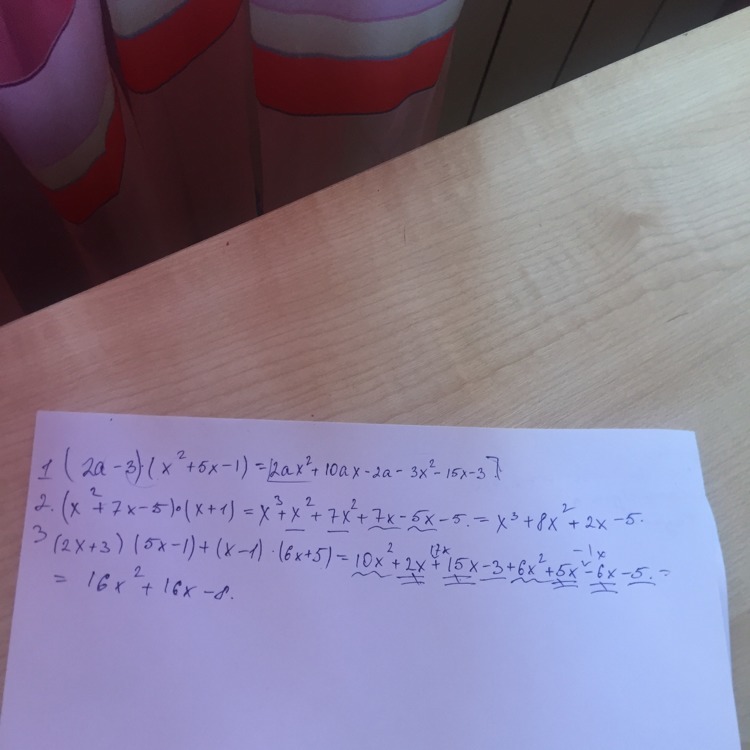 1 (2a-3)·(x²+5x-1)=[2ax²+10ax-2a-3x²-15x-3]
2. (x²+7x-5)·(x+1)=x³+x²+7x²+7x-5x-5.=x³+8x²+2x-5.
17x -1x
3 (2x+3)(5x-1)+(x-1)·(6x+5)=10x²+2x+15x-3+6x²+5x-6x-5.=
= 16x²+16x-8.